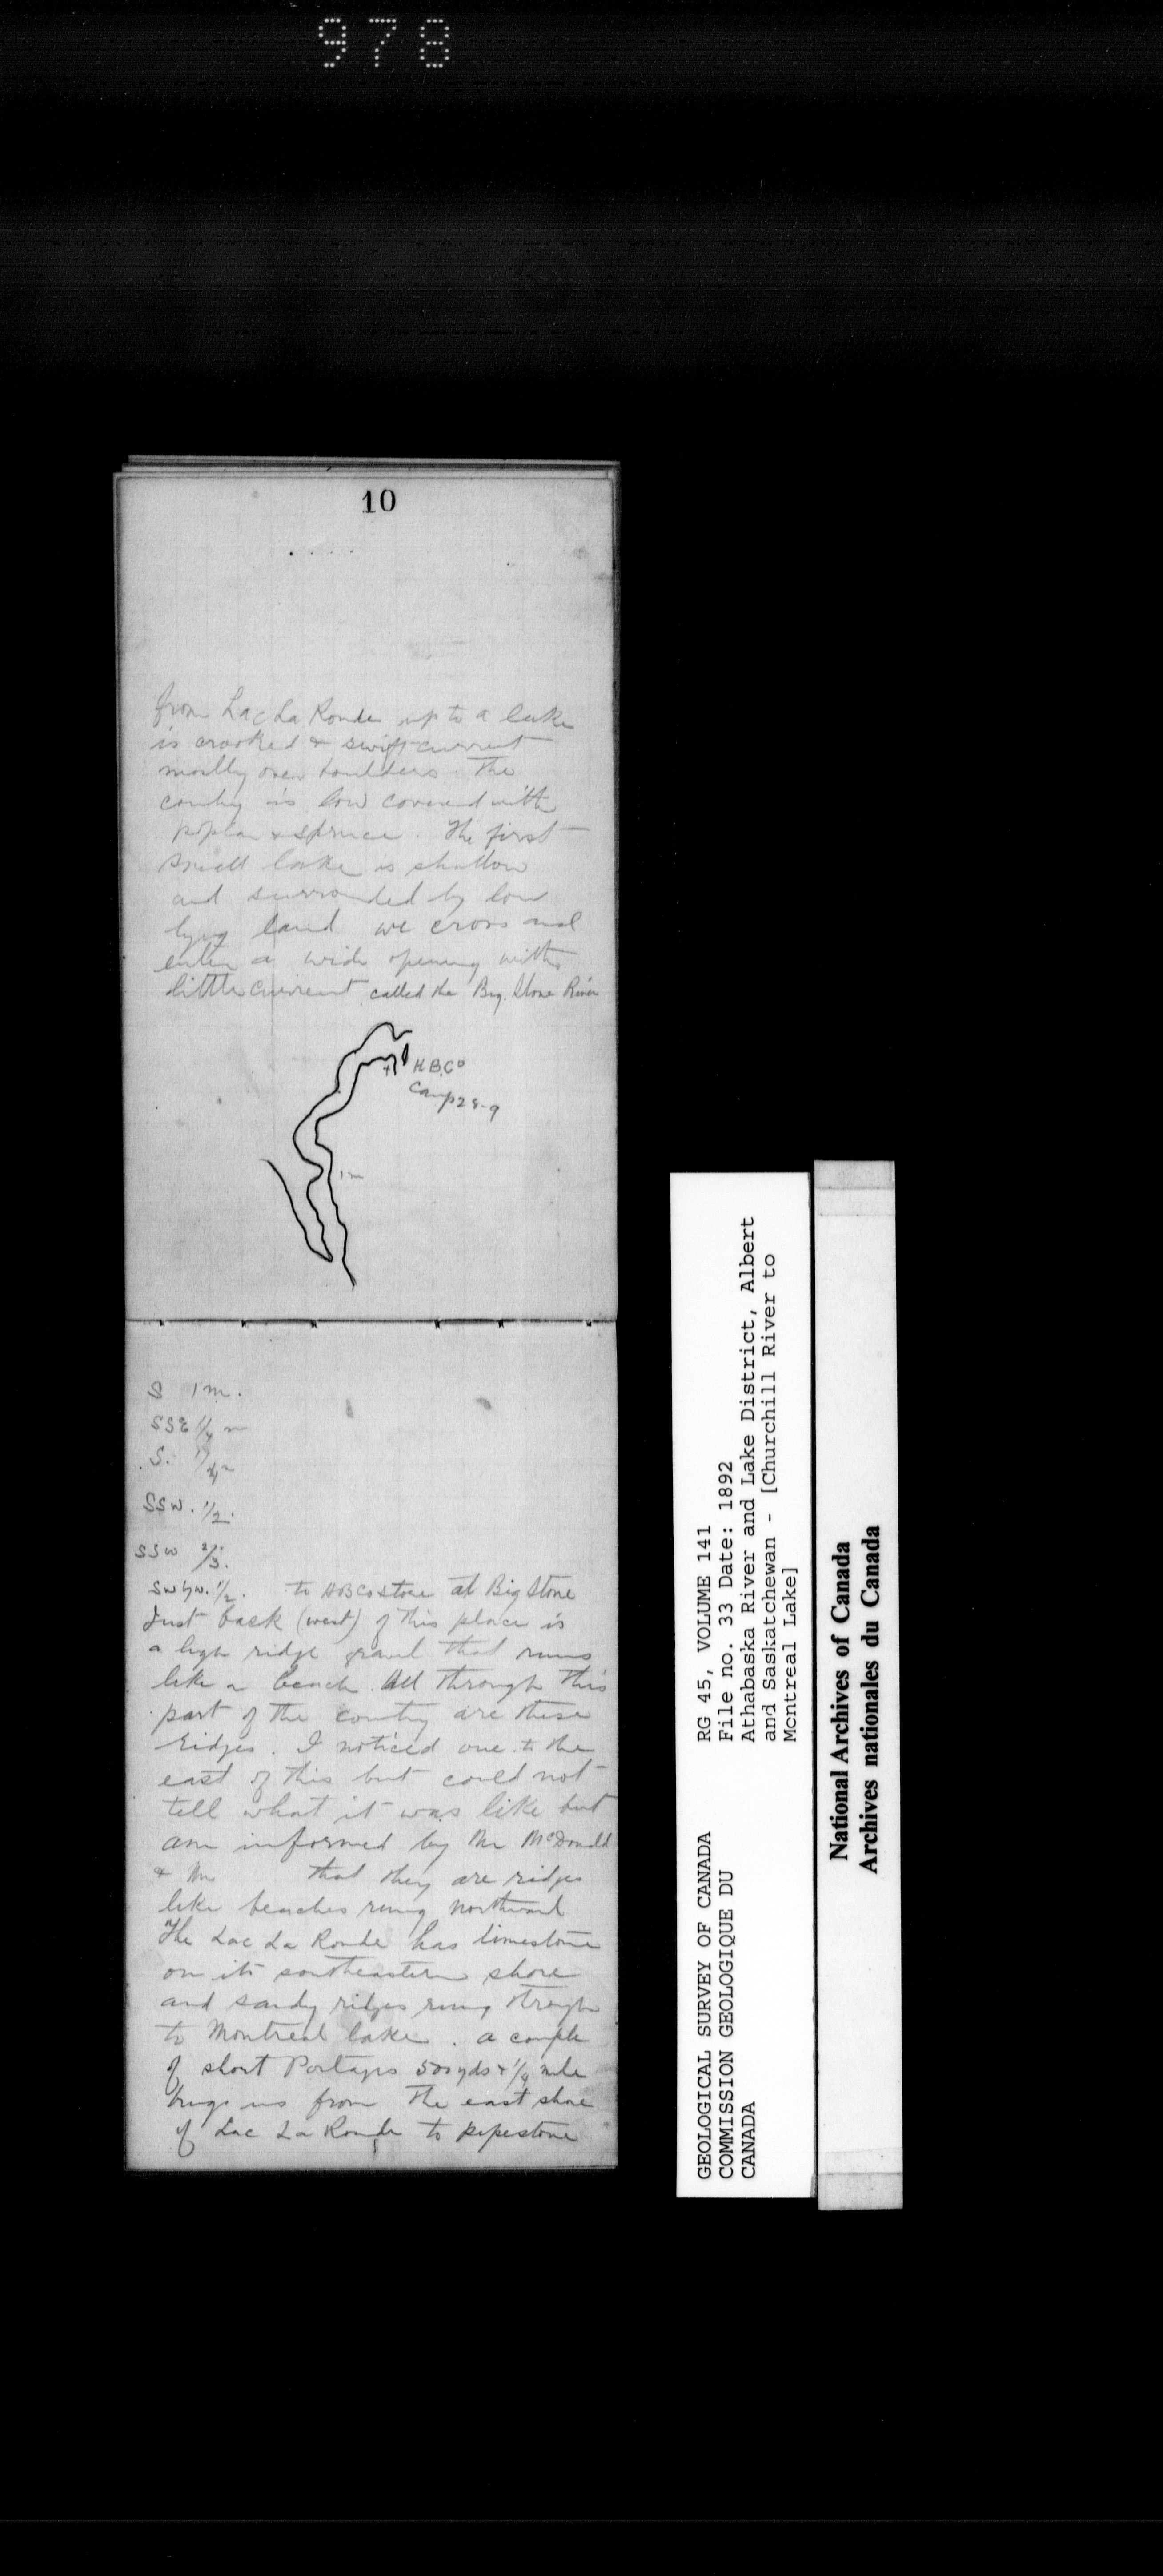 978
10
from Lac La Ronde up to a lake
is crooked & swift current
mostly over boulders. The
country is low covered with
poplar & spruce. The first
small lake is shallow
and surrounded by low
lying land we cross and
enter a wide opening with
little current called the Big Stone River
H.B.Co
Camp 28-9
1 m
S 1 m.
SSE 1/4 m
S.
SSW. 1/2.
SSW 2/3.
SW by W. 1/2. to HBCo store at Big Stone
Just back (west) of this place is
a high ridge gravel that runs
like a beach. All through this
part of the country are these
ridges. I noticed one to the
east of this but could not
tell what it was like but
am informed by Mr McDonald
& Mr that they are ridges
like beaches runng northward
The Lac La Ronde has limestone
on its southeastern shore
and sandy ridges runng through
to Montreal lake. a couple
of short Portages 500 yds & 1/4 mile
brings us from the east shore
of Lac La Ronde to pipestone
GEOLOGICAL SURVEY OF CANADA
COMMISSION GEOLOGIQUE DU
CANADA
RG 45, VOLUME 141
File no. 33 Date: 1892
Athabaska River and Lake District, Albert
and Saskatchewan - [Churchill River to
Montreal Lake]
National Archives of Canada
Archives nationales du Canada